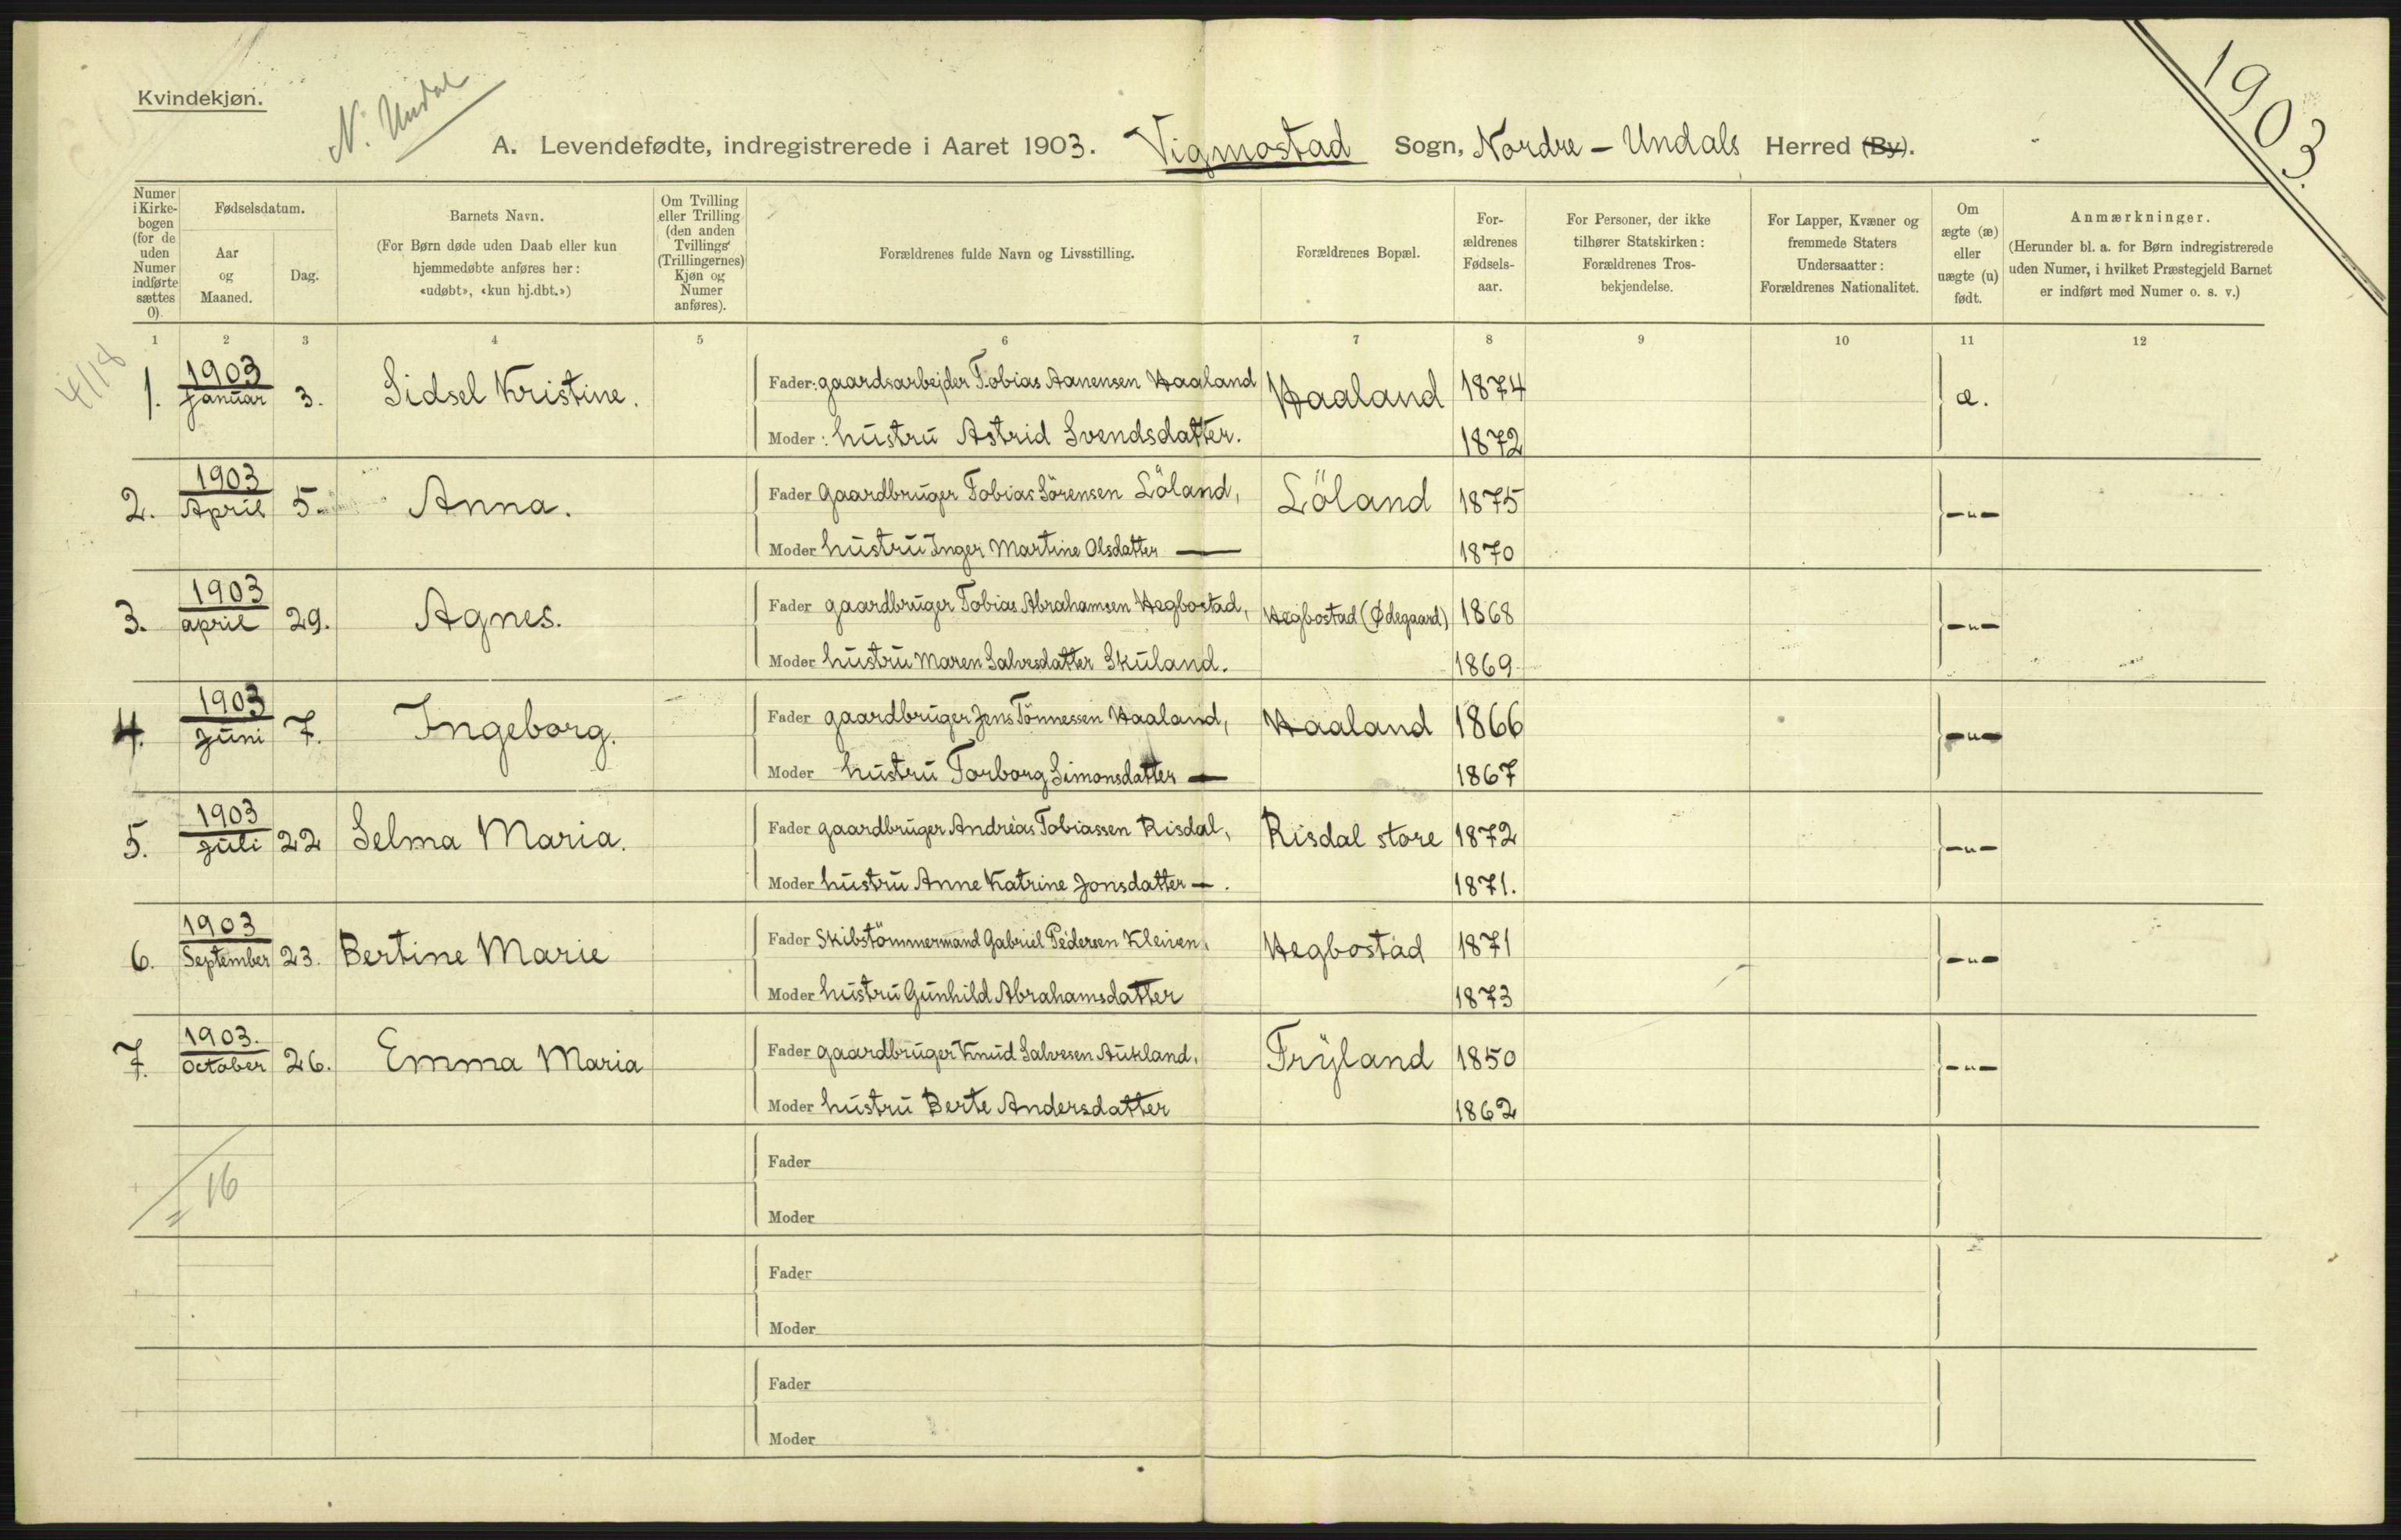 Kvindekjøn.
N. Undal
1903.
A. Levendefødte, indregistrerede i Aaret 1903. Vigmostad Sogn, Nordre - Undals Herred (By).
Numer i Kirkebogen (for de uden Numer indførte sættes 0).
Fødselsdatum.
Aar og Maaned.
Dag.
Barnets Navn.
(For Børn døde uden Daab eller kun hjemmedøbte anføres her: «udøbt», «kun hj.dbt.»)
Om Tvilling eller Trilling (den anden Tvillings' (Trillingernes) Kjøn og Numer anføres).
Forældrenes fulde Navn og Livsstilling.
Forældrenes Bopæl.
Forældrenes Fødselsaar.
For Personer, der ikke tilhører Statskirken: Forældrenes Trosbekjendelse.
For Lapper, Kvæner og fremmede Staters Undersaatter: Forældrenes Nationalitet.
Om ægte (æ) eller uægte (u) født.
Anmærkninger.
(Herunder bl. a. for Børn indregistrerede uden Numer, i hvilket Præstegjeld Barnet er indført med Numer o. s. v.)
1 2 3 4 5 6 7 8 9 10 11 12
4/18
1. 1903 Januar 3. Sidsel Kristine. Fader: gaardsarbejder Tobias Aanensen Haaland Haaland 1874 æ.
Moder: hustru Astrid Svendsdatter. 1872
2. 1903 April 5. Anna. Fader Gaardbruger Tobias Sörensen Löland, Löland 1875 -"-
Moder hustru Inger Martine Olsdatter — 1870
3. 1903 april 29. Agnes. Fader gaardbruger Tobias Abrahamsen Hegbostad, Hegbostad (Ødegaard) 1868 -"-
Moder hustru Maren Salvesdatter Skuland. 1869
4. 1903 Juni 7. Ingeborg. Fader gaardbruger Jens Tönnessen Haaland, Haaland 1866 -"-
Moder hustru Torborg Simonsdatter — 1867
5. 1903 Juli 22 Selma Maria. Fader gaardbruger Andreas Tobiassen Risdal, Risdal store 1872 -"-
Moder hustru Anne Katrine Jonsdatter —. 1871.
6. 1903 September 23. Bertine Marie Fader Skibstömmermand Gabriel Pedersen Kleiven, Hegbostad 1871 -"-
Moder hustru Gunhild Abrahamsdatter 1873
7. 1903. October 26. Emma Maria Fader gaardbruger Knud Salvesen Aukland, Fryland 1850 -"-
Moder hustru Berte Andersdatter 1862
Fader
16
Moder
Fader
Moder
Fader
Moder